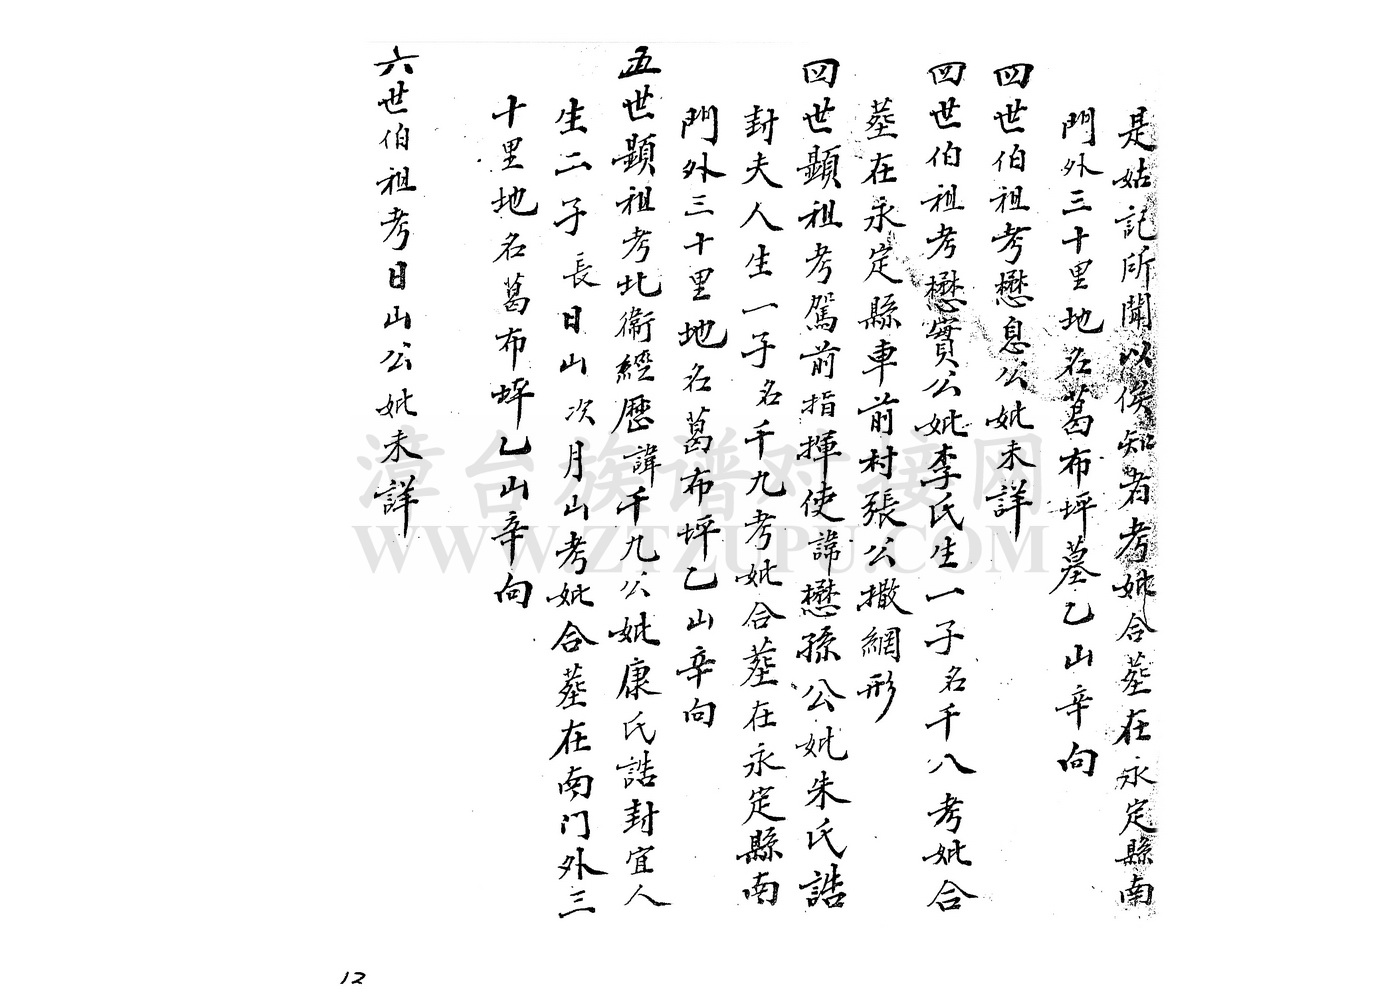 是姑記所聞以俟知者考妣合塟在永定縣南
門外三十里地名葛布坪墓乙山辛向
四世伯祖考懋息公妣未詳
四世伯祖考懋實公妣李氏生一子名千八考妣合
塟在永定縣車前村張公撒網形
四世顕祖考駕前指揮使諱懋孫公妣朱氏誥
封夫人生一子名千九考妣合塟在永定縣南
門外三十里地名葛布坪乙山辛向
五世顕祖考北衞經歷諱千九公妣康氏誥封宜人
生二子長日山次月山考妣合塟在南门外三
十里地名葛布坪乙山辛向
六世伯祖考日山公妣未詳
漳台族谱对接网
WWW.ZTZUPU.COM
12